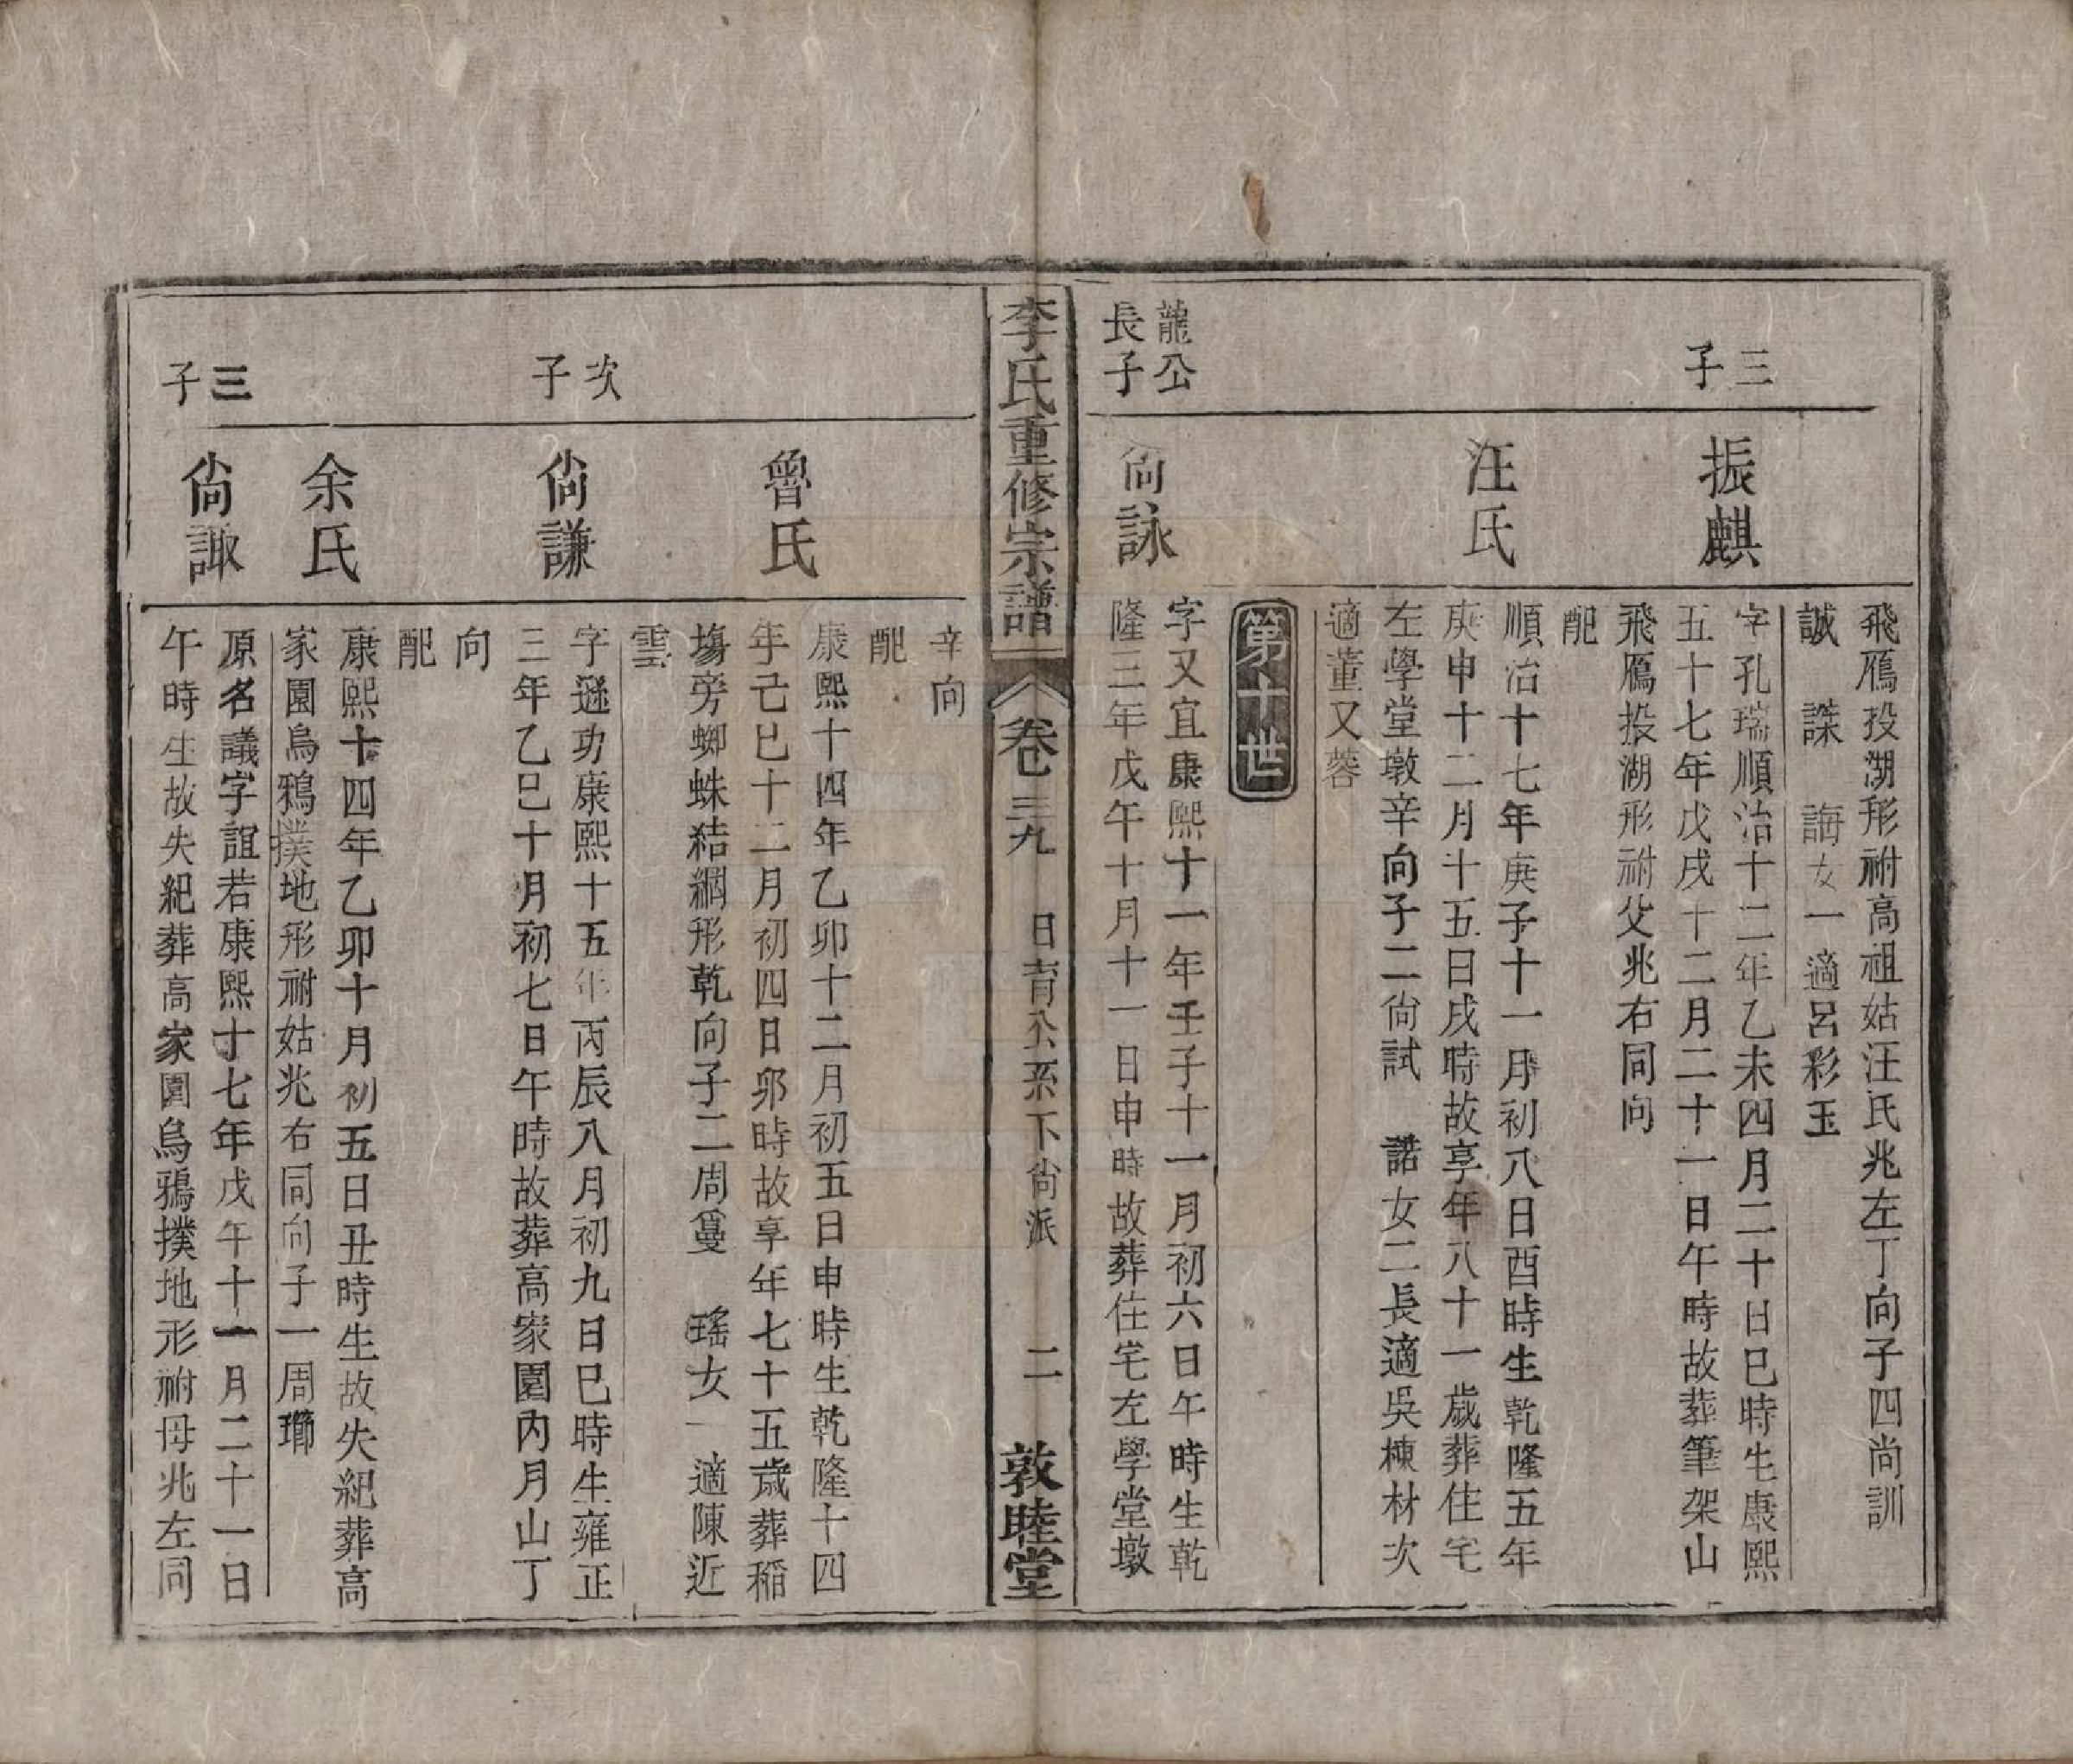 飛鴈投湖形祔高祖姑汪氏兆左丁向子四尚訓
誠　謀　誨女一適呂彩玉
三子
振麒
字孔瑞順治十二年乙未四月二十日巳時生康熙
五十七年戊戌十二月二十一日午時故葬筆架山
飛鴈投湖形祔父兆右同向
配
汪氏
順治十七年庚子十一月初八日酉時生乾隆五年
庚申十二月十五日戌時故享年八十一歲葬住宅
左學堂墩辛向子二尚試　諾女二長適吳棟材次
適董又蓉
第十世
龍公長子
尚詠
字又宜康熙十一年壬子十一月初六日午時生乾
隆三年戊午十月十一日申時故葬住宅左學堂墩
李氏重修宗譜　卷三九　日育公系下尚派　二　敦睦堂
辛向
配
魯氏
康熙十四年乙卯十二月初五日申時生乾隆十四
年己巳十二月初四日卯時故享年七十五歲葬稲
塲旁蜘蛛結網形乾向子二周　瑤女一適陳近
雲
次子
尚謙
字遜功康熙十五年丙辰八月初九日巳時生雍正
三年乙巳十月初七日午時故葬高家園內月山丁
向
配
余氏
康熙十四年乙卯十月初五日丑時生故失紀葬高
家園烏鴉撲地形祔姑兆右同向子一周
三子
尚諏
原名議字誼若康熙十七年戊午十一月二十一日
午時生故失紀葬高家園烏鴉撲地形祔母兆左同